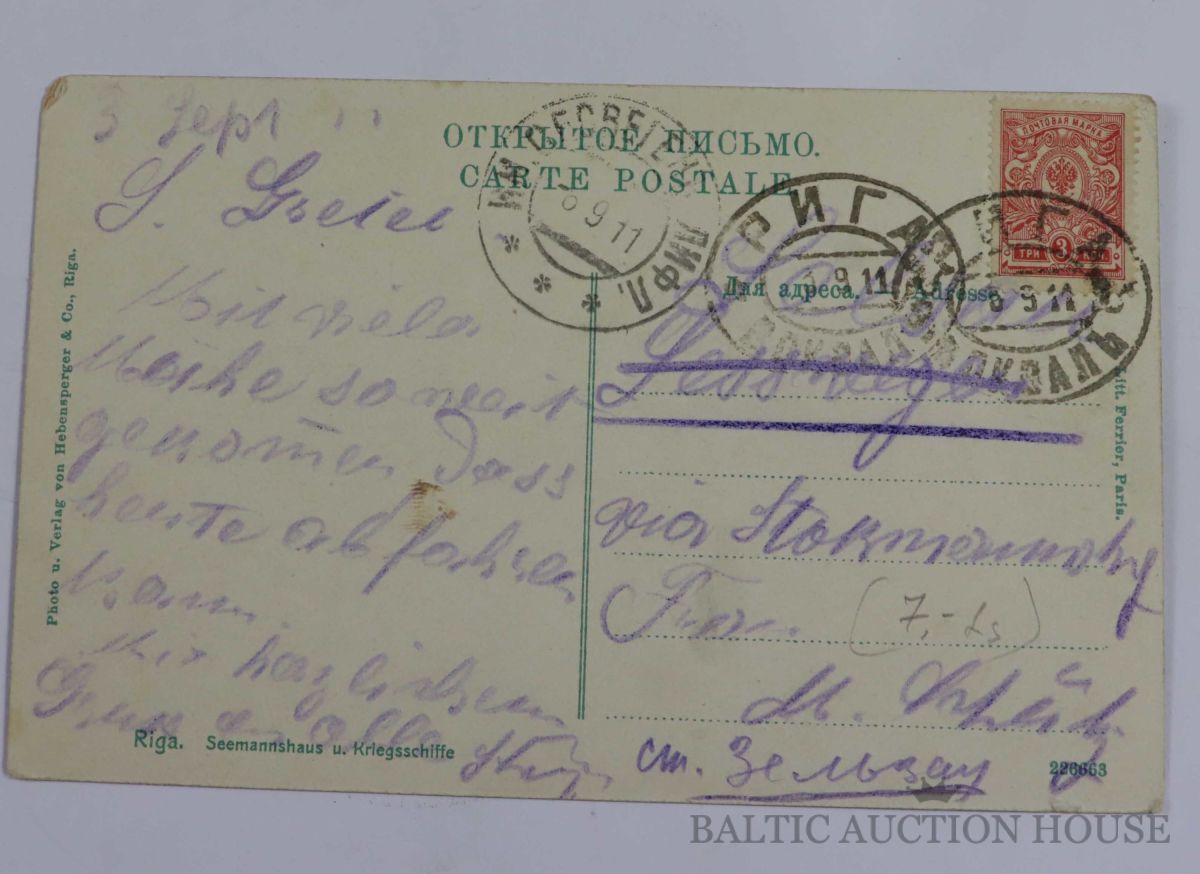 3 Sept 11
ОТКРЫТОЕ ПИСЬМО.
CARTE POSTALE
L. Gretel
Mit viele
Mühe so weit
genomen dass
heute abfahren
kann.
Mit herzlichem
Gruss an alle
Photo u. Verlag von Hebensperger & Co., Riga.
Riga. Seemannshaus u. Kriegsschiffe
ЛИФЛ.
6 9 11
ПОЧТОВАЯ МАРКА
ТРИ 3 КОП
РИГА
9 11
ВОКЗАЛ
РИГА
3 9 11
ВОКЗАЛЪ
Для адреса. Adresse
Sesswegen
via Stokmannshof
Frau
(7,- Ls)
M.
ст. Зельзау
226663
Litt. Ferrier, Paris.
BALTIC AUCTION HOUSE